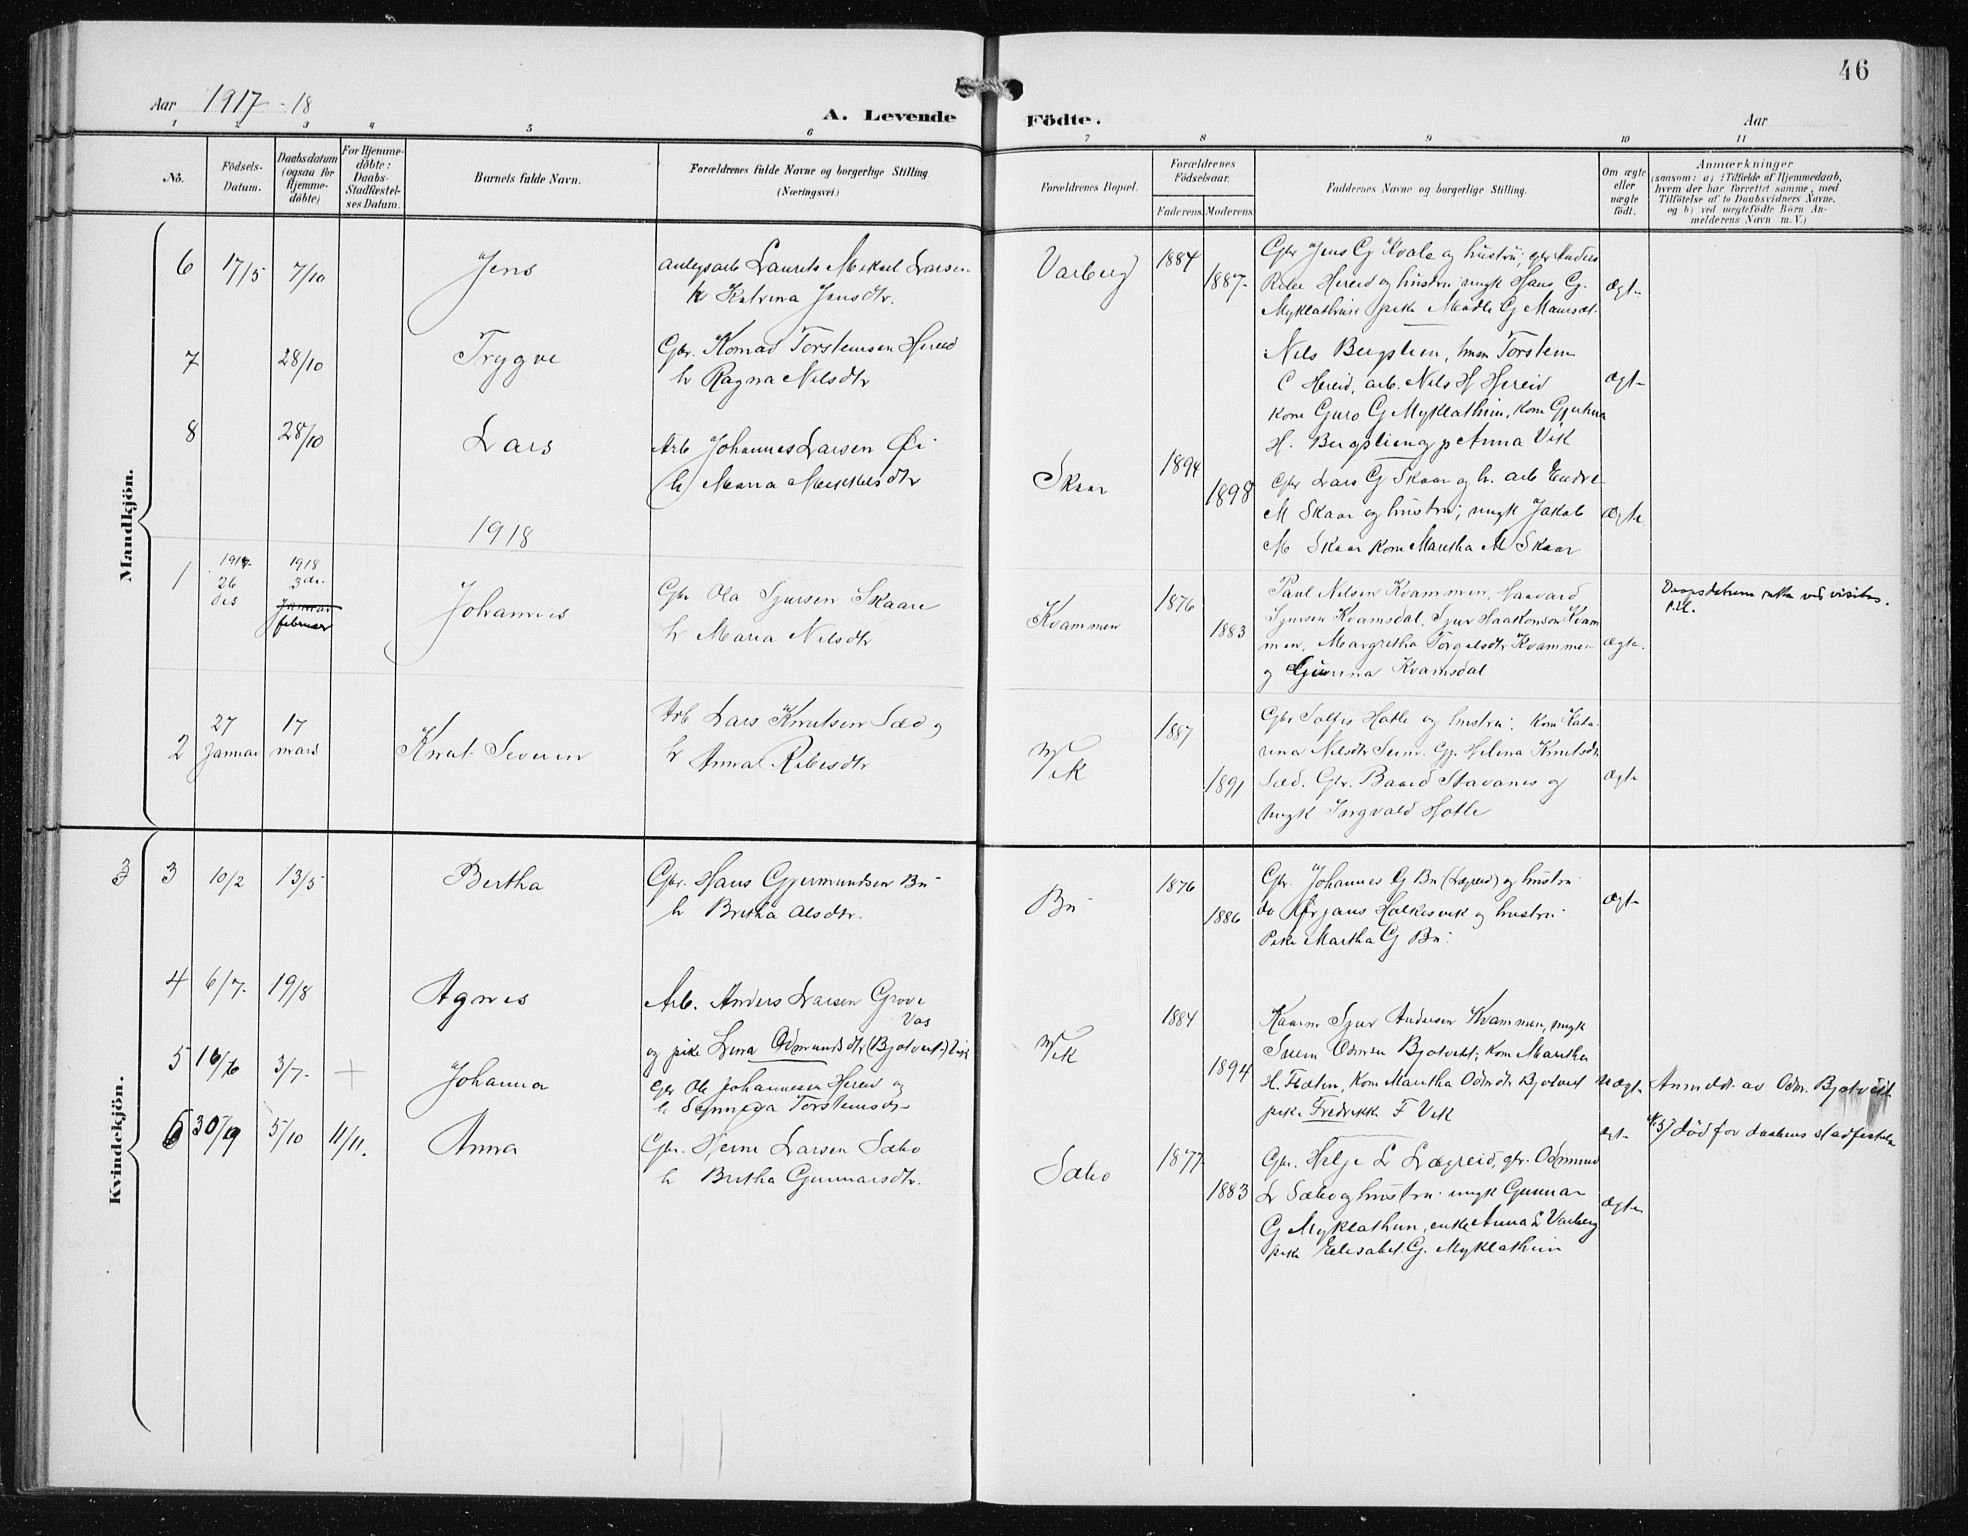 46
Aar 1917-18
A. Levende Födte.
Aar
1 2 3 4 5 6 7 8 9 10 11
No.
Födsels-Datum.
Daabsdatum (ogsaa for Hjemme-döbte)
For Hjemme-döbte: Daabs-Stadfæstel-ses Datum.
Barnets fulde Navn.
Forældrenes fulde Navne og borgerlige Stilling.
(Næringsvei)
Forældrenes Bopæl.
Forældrenes Födselsaar.
Faderens. Moderens.
Faddernes Navne og borgerlige Stilling.
Om ægte eller uægte födt.
Anmærkninger
(saasom: a) i Tilfælde af Hjemmedaab,
hvem der har forrettet samme, med
Tilföielse af to Daabsvidners Navne,
og b) ved uægtefödte Börn An-
melderens Navn m. V.)
Mandkjön.
6 17/5 7/10 Jens
Laurits Mikael Larsen
h Katrina Jensdtr.
Varberg 1884 1887
Gbr Jens G Kvale og hustru, gbr Anders
Hereid og hustru, ungk Hans G.
Myklathun pike G
Ægte
7 28/10 Trygve
Gbr. Konrad Torsteinsen Hereid
h Ragna Nilsdtr
Nils Bergslien, Torstein
C Hereid, arb. Nils H Hereid
Kone Guro G Myklathun, Kone
H. Bergslien og p Anna Vik
Ægt
8 28/10 Lars
Arb Johannes Larsen Øi
h Maria Mikkelsdtr
Skaar 1894 1898
Gbr Lars G Skaar og h. arb Endre
M Skaar og hustru, ungk Jakob
M Skaar Kone Martha M Skaar
Ægte
1918
1 1917 26 des 1918 3die januar februar Johannes
Gbr Ola Sjursen Skaare
h Maria Nilsdtr
Kvammen 1876 1883
Paul Nilsen Kvammen, Haavard
Sjursen Kvamsdal, Sjur Haakonson Kvam
men, Margretha Torgelsdtr Kvammen
og Gunna Kvamsdal
Ægte.
Daapsdatum retta ved visitas.
2 27 Januar 17 mars Knut Severin
Arb Lars Knutsen Sæd og
h Anna Ribesdtr
Vik 1887 1891
Gbr Hotle og hustru: Kone Kata-
rina Nilsdtr Seim. Gp. Helena Knutsdtr
Sæd. Gbr. Baard Stavanes og
ungk Ingvald Hotle
Ægte
Kvindekjön.
3 3 10/2 13/5 Bertha
Gbr. Hans Gjermundsen Bu
h Britha Olsdtr.
Bu 1876 1886
Gbr. Johannes G Bu (Lægreid) og hustru
do Ørjans Halkesvik og hustru
Pike Martha G Bu.
Ægte
4 6/7. 19/8 Agnes
Arb. Anders Larsen Grove
Vos
og pike Lina Odmundsdtr (Bjotveit)
Vik 1884 1894
Sjur Andersen Kvammen, ungk
Svein Odmsen Bjotveit; Kone Martha
H. Floten, Kone Martha Odmdtr Bjotveit
pike Fredrikk F Vik
Uægte
Anmeldt. av Odm. Bjotveit
5 16/6 3/7. + Johanna
Gbr Ole Johannesen Hereid og
h Synneva Torsteinsdtr
ægt
Nr 5) død før daabens stadfestelse
6 30/9 5/10 11/11. Anna
Gbr. Larsen Sæbo
h Britha Gunnarsdtr.
Sæbo 1877 1883
Gbr. Helje L Lægreid, gbr. Odmund
L Sæbo og hustru. ungk Gunnar
G Myklathun, enke Anna L Varberg
pike Elisabet. G. Myklathun
Ægte